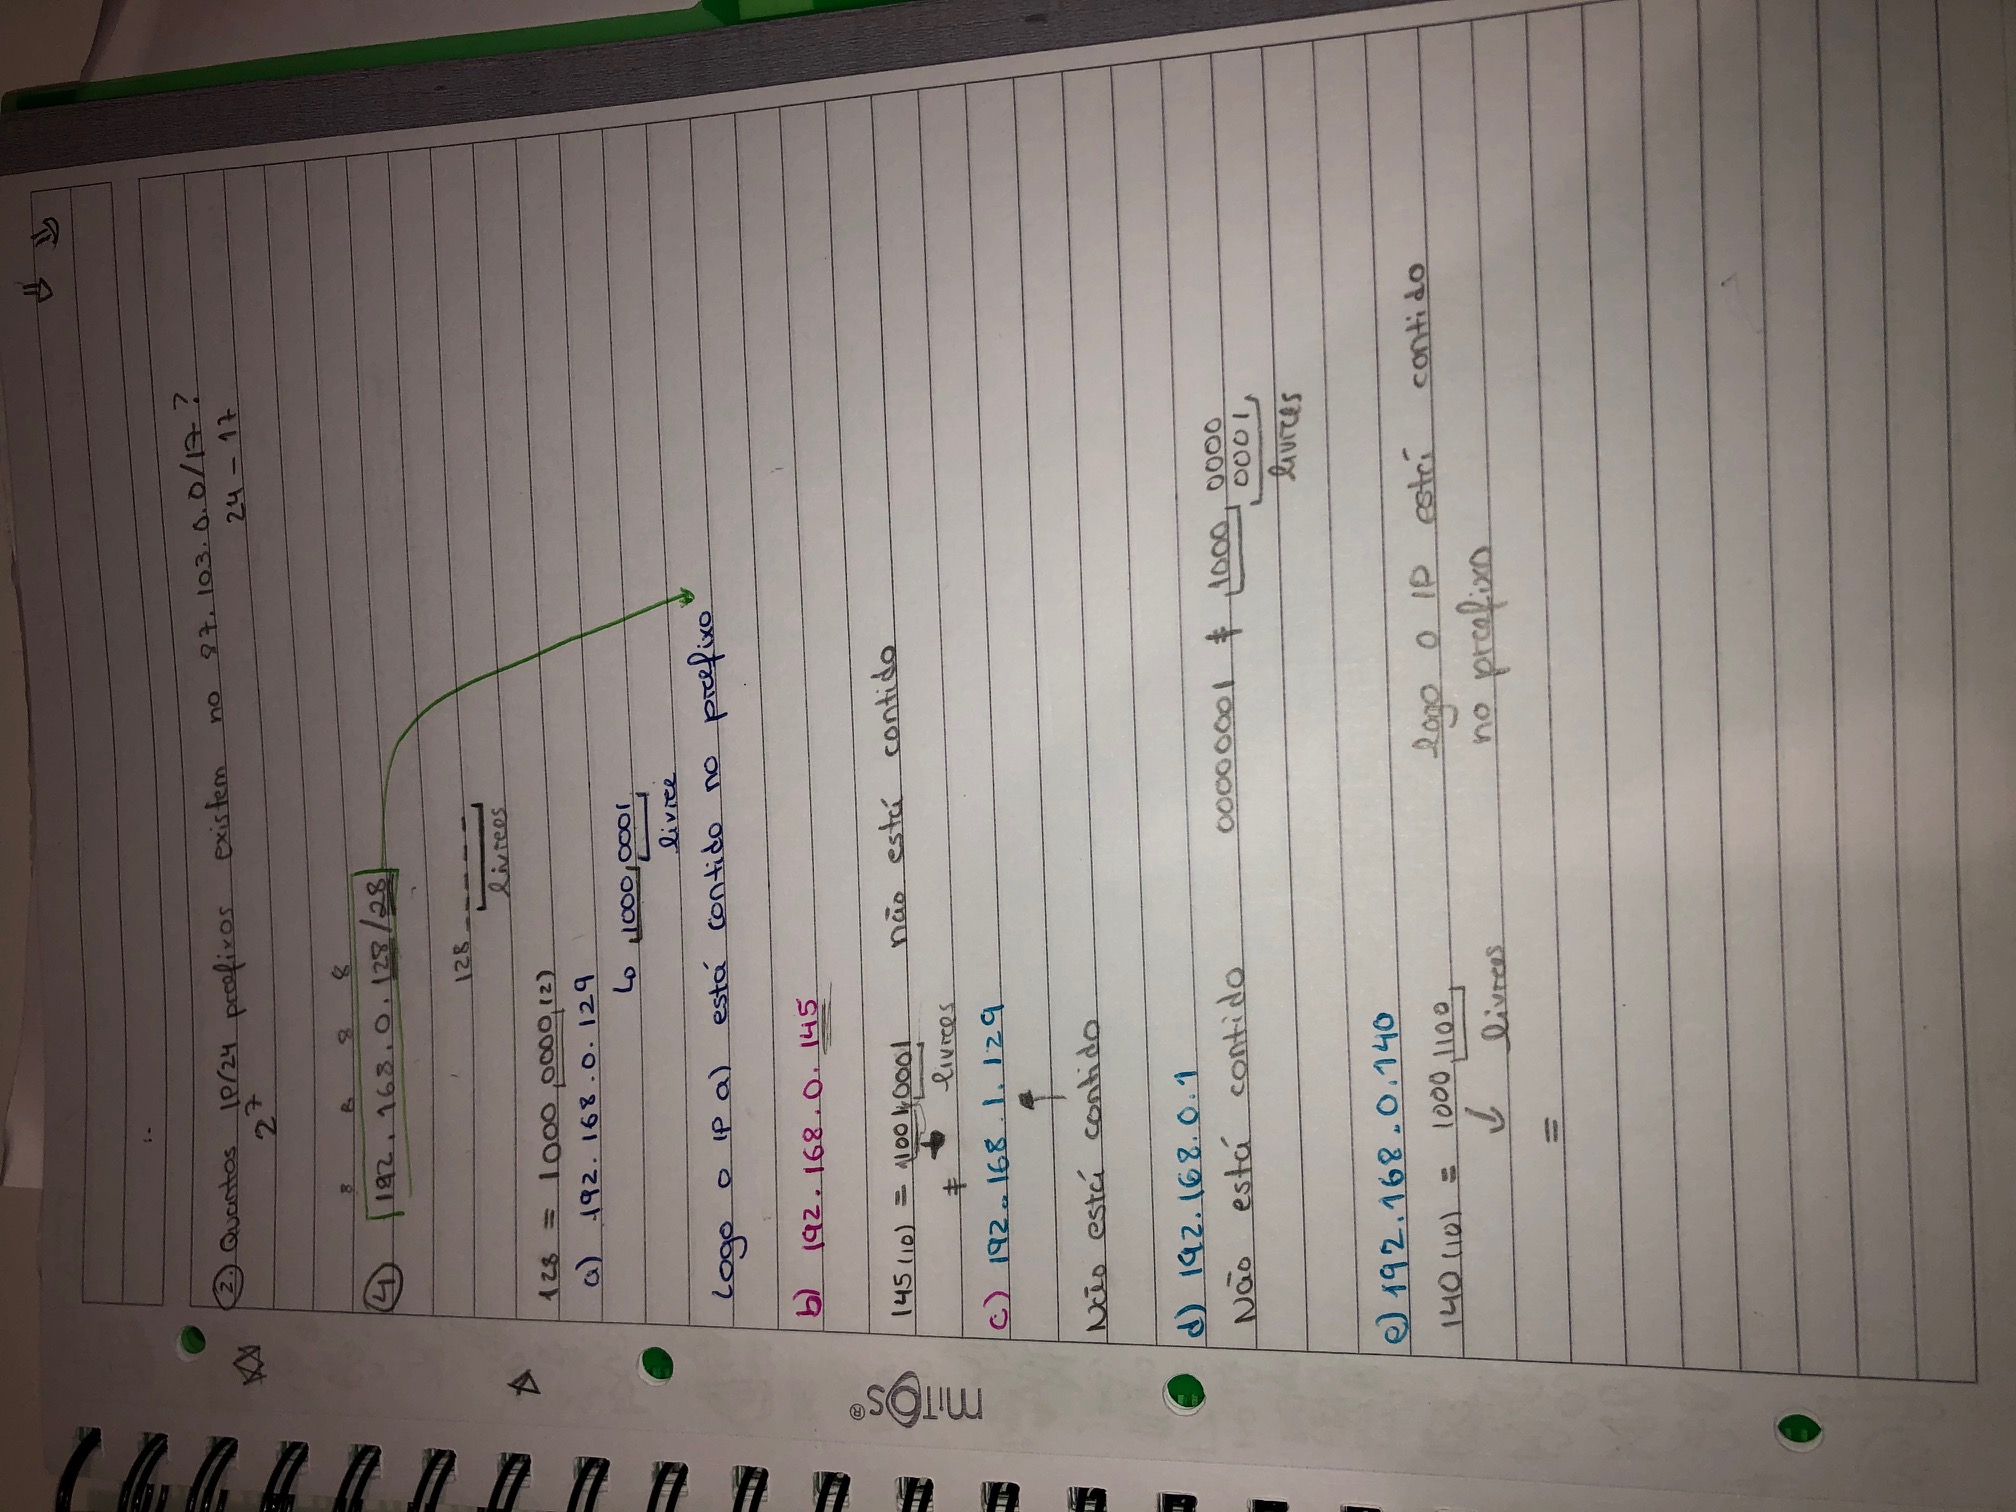 2. Quantos IP/24 prefixos existem no 87.103.0.0/17?
2^7 24 - 17
8 8 8 8
4 192.168.0.128/28
128 _ _ _ _ _
livres
128 = 1000 0000 (2)
a) 192.168.0.129
↳ 1000 0001
livre
Logo o IP a) está contido no prefixo
b) 192.168.0.145
145 (10) = 1001 0001 não está contido
≠ livres
c) 192.168.1.129
Não está contido
d) 192.168.0.1
Não está contido 00000001 ≠ 1000 0000
0001
livres
e) 192.168.0.140
140 (10) = 1000 1100 logo o IP está contido
↓ livres no prefixo
=
MiTOS®